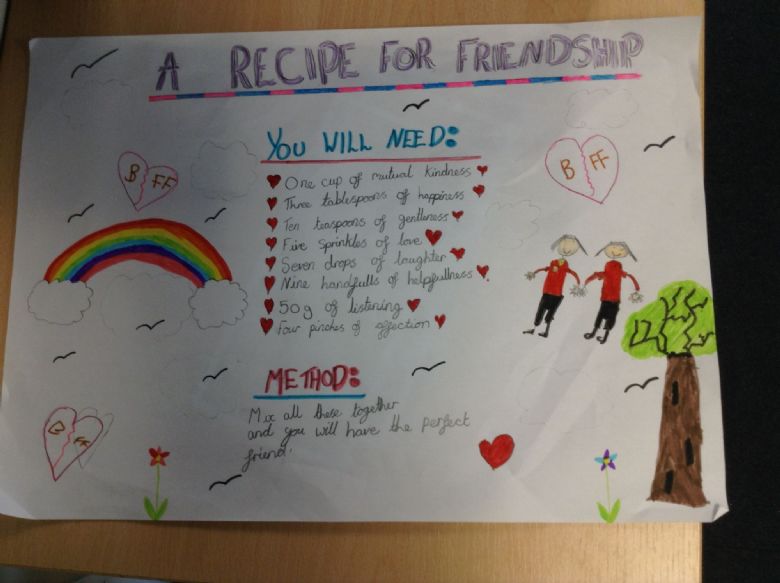 A RECIPE FOR FRIENDSHIP
YOU WILL NEED:
One cup of mutual kindness
Three tablespoons of happiness
Ten teaspoons of gentleness
Five sprinkles of love
Seven drops of laughter
Nine handfulls of helpfullness
50g of listening
Four pinches of affection
METHOD:
Mix all these together
and you will have the perfect
friend.
B FF
B FF
B FF